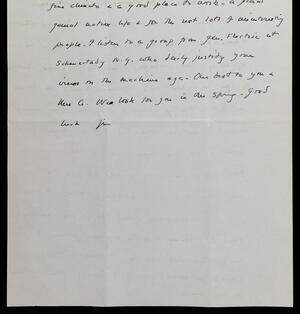 fine climate & a good place to work. a
general nature. like & for the most lots of uninteresting
people. I listen to a group from Gen. Electric at
Schenectady N.Y. who daily justify your
views on the machine age. Our best to you &
Co. We look for you in the spring. Good
luck Jim